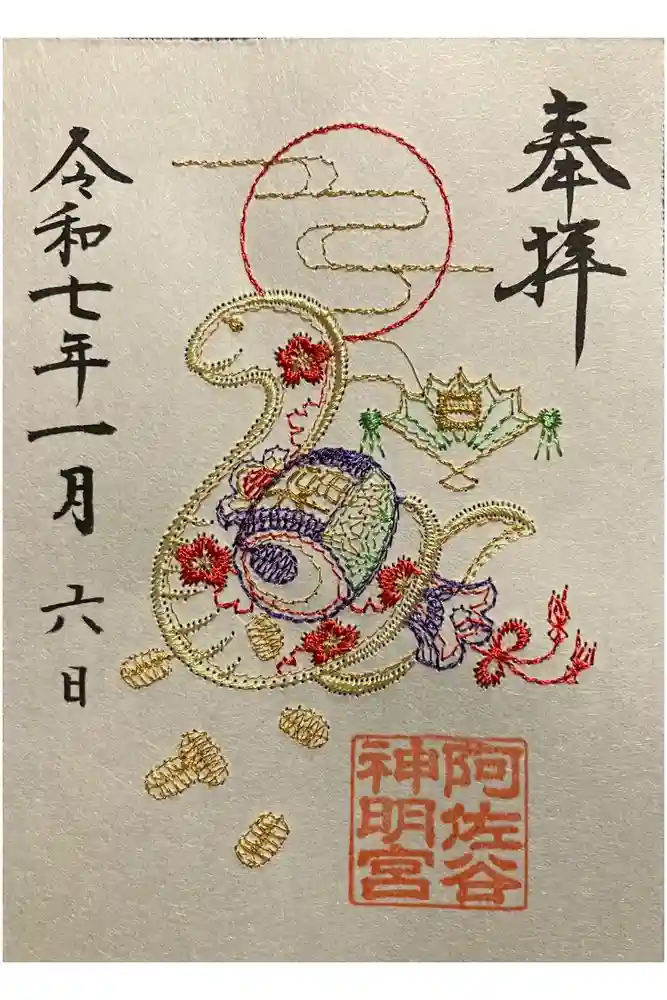 奉拝
阿佐谷
神明宮
令和七年一月六日